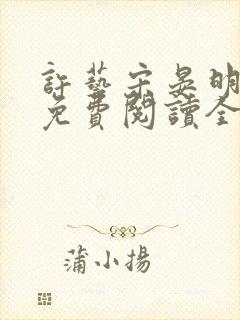 許藝宋晏明
免費閱讀全
蒲小揚